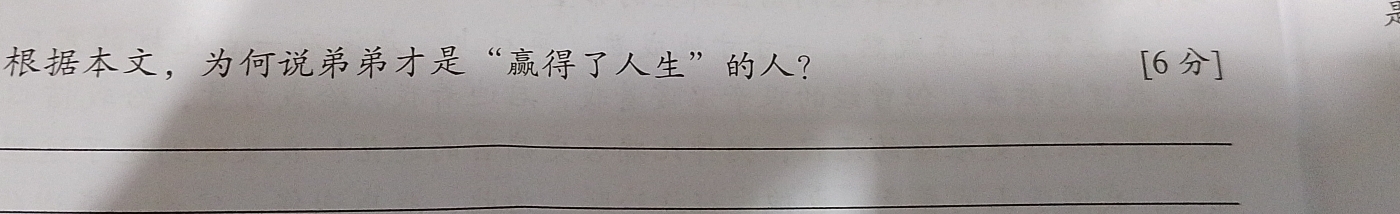 根据本文，为何说弟弟才是“赢得了人生”的人？ [6 分]